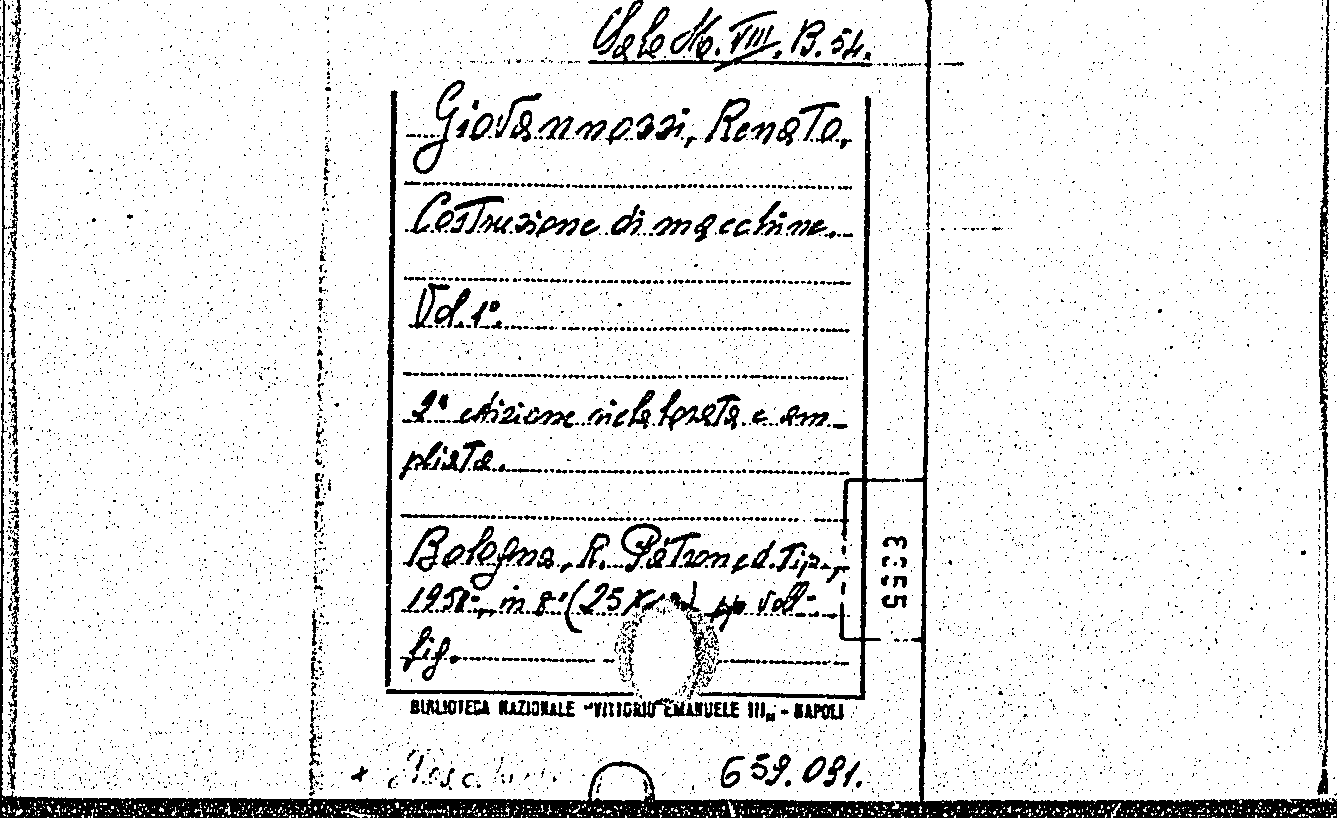 Sala M. VIII. B. 54.
Giovannozzi, Renato.
Costruzione di macchine.
Vol. 1°.
2ª edizione rielaborata e am-
pliata.
Bologna, R. Pàtron, ed. Tip.,
1958-, in 8° (25 x voll-
fig.
3355
BIBLIOTECA NAZIONALE "VITTORIO EMANUELE III" - NAPOLI
659.091.